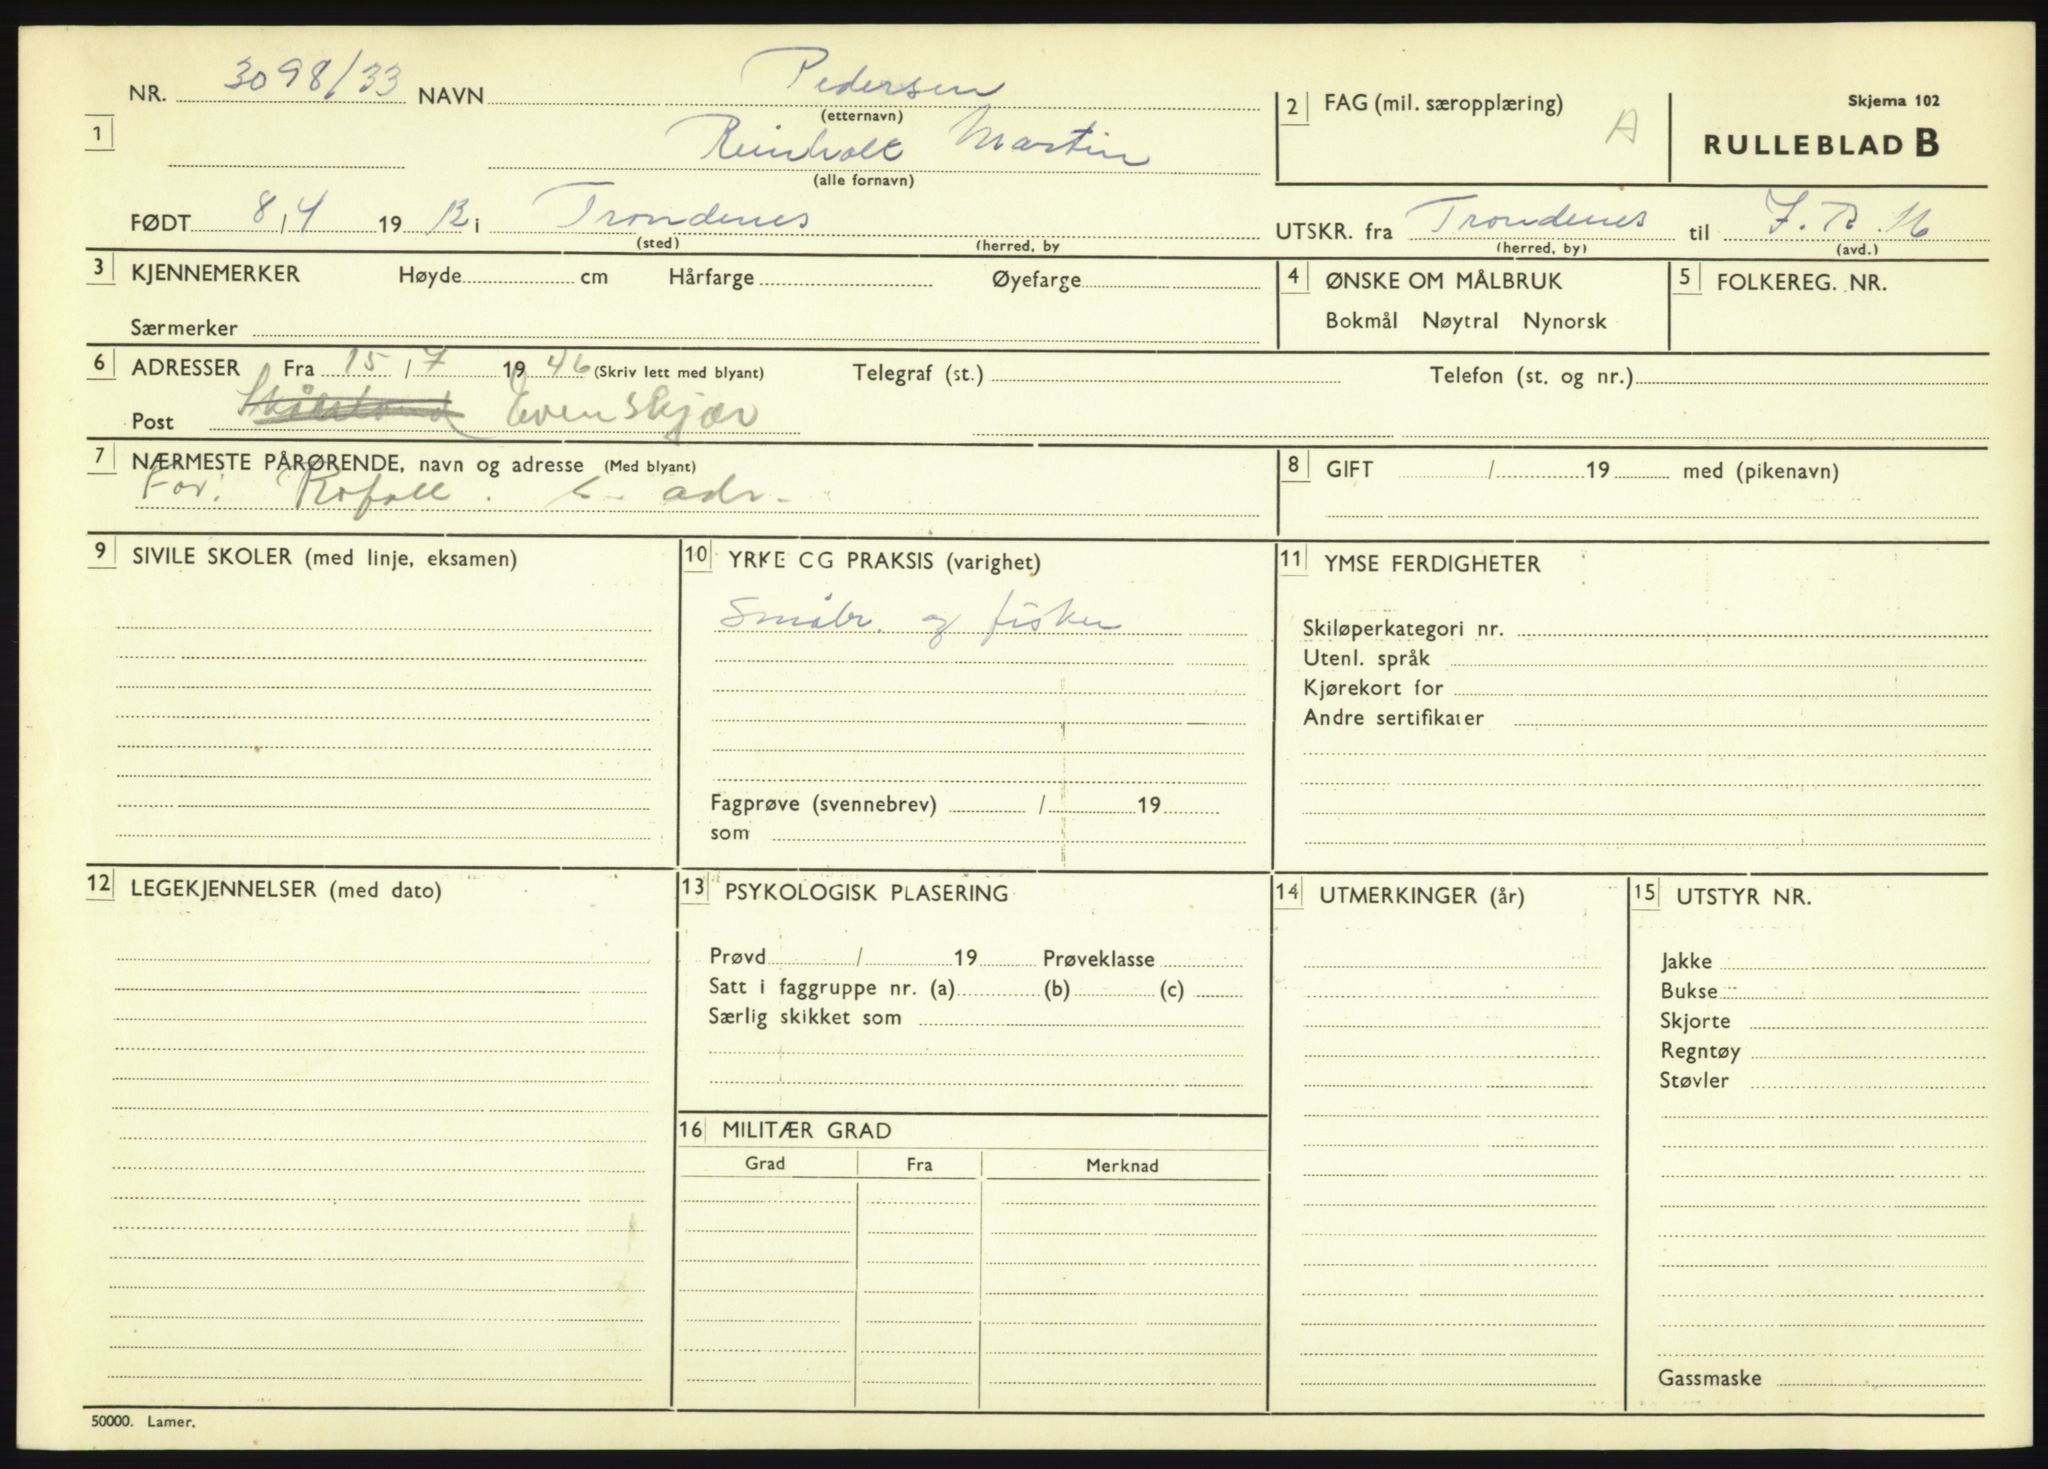 NR. 3098/33 NAVN Pedersen
(etternavn)
1 Reinholt Martin
(alle fornavn)
2 FAG (mil. særopplæring) A
Skjema 102
RULLEBLAD B
FØDT 8/4 1912 i Trondenes
(sted) (herred, by
UTSKR. fra Trondenes til I.R.16
(herred, by) (avd.)
3 KJENNEMERKER Høyde cm Hårfarge Øyefarge
Særmerker
4 ØNSKE OM MÅLBRUK
Bokmål Nøytral Nynorsk
5 FOLKEREG. NR.
6 ADRESSER Fra 15/7 1946 (Skriv lett med blyant) Telegraf (st.) Telefon (st. og nr.)
Post Evenskjær
7 NÆRMESTE PÅRØRENDE, navn og adresse (Med blyant)
Far: Rofall. s. adr.
8 GIFT / 19 med (pikenavn)
9 SIVILE SKOLER (med linje, eksamen)
10 YRKE CG PRAKSIS (varighet)
Småbr. og fisker
Fagprøve (svennebrev) / 19
som
11 YMSE FERDIGHETER
Skiløperkategori nr.
Utenl. språk
Kjørekort for
Andre sertifikater
12 LEGEKJENNELSER (med dato)
13 PSYKOLOGISK PLASERING
Prøvd / 19 Prøveklasse
Satt i faggruppe nr. (a) (b) (c)
Særlig skikket som
14 UTMERKINGER (år)
15 UTSTYR NR.
Jakke
Bukse
Skjorte
Regntøy
Støvler
Gassmaske
16 MILITÆR GRAD
Grad Fra Merknad
50000. Lamer.